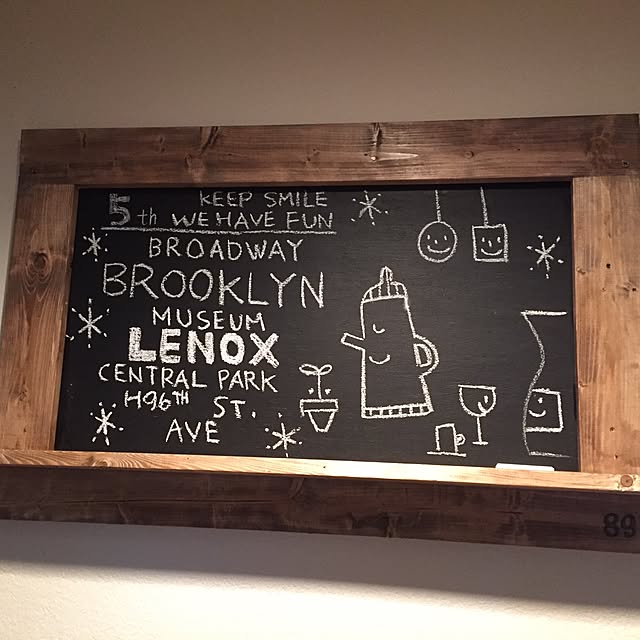 KEEP SMILE
5th WE HAVE FUN
BROADWAY
BROOKLYN
MUSEUM
LENOX
CENTRAL PARK
H96TH ST.
AVE
89